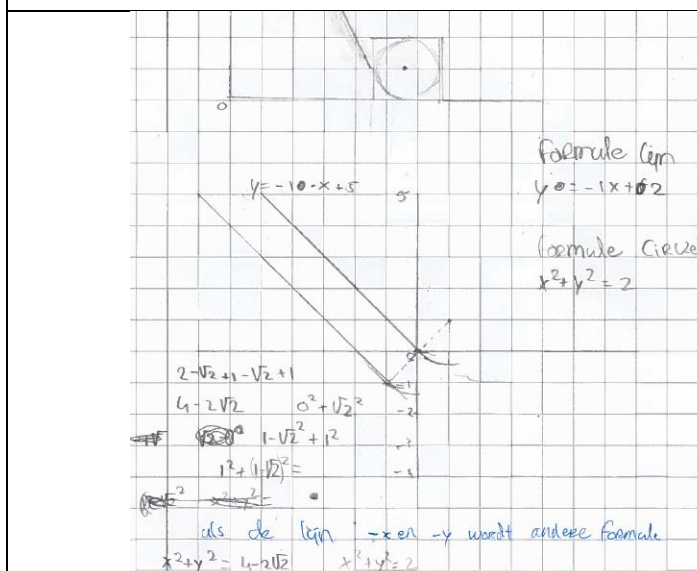 0
Formule lijn
y = -10 · x + 5
5
y = -1x + 2
formule Circel
x² + y² = 2
2-√2+1-√2+1
-1
4-2√2
0² + √2²
-2
1-√2² + 1²
-2
1² + (1-√2)² =
als de lijn -x en -y wordt andere formule
x² + y² = 4-2√2
x² + y² = 2